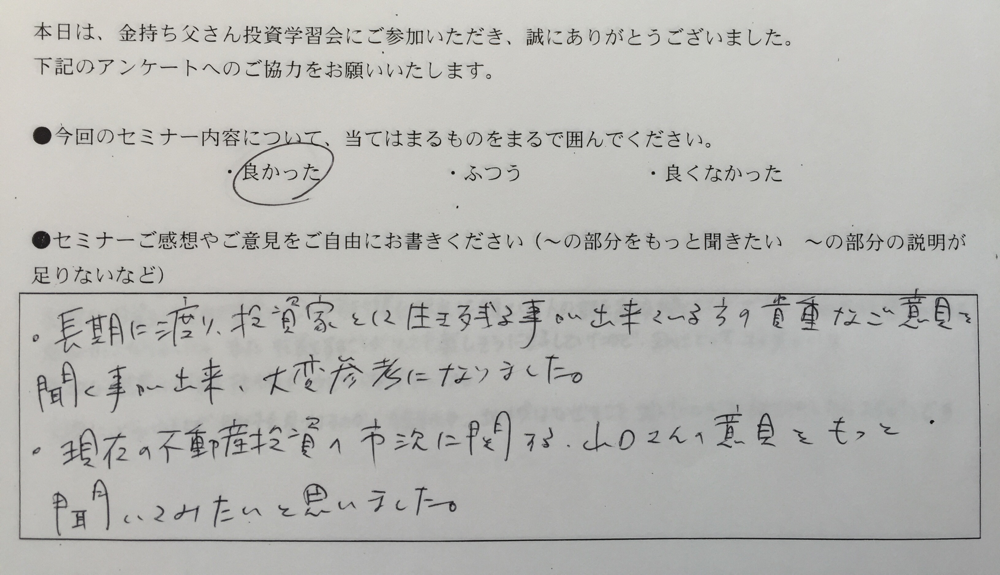 本日は、金持ち父さん投資学習会にご参加いただき、誠にありがとうございました。
下記のアンケートへのご協力をお願いいたします。
●今回のセミナー内容について、当てはまるものをまるで囲んでください。
・良かった ・ふつう ・良くなかった
●セミナーご感想やご意見をご自由にお書きください（～の部分をもっと聞きたい　～の部分の説明が
足りないなど）
・長期に渡り、投資家として生き残る事が出来ている方の貴重なご意見を
聞く事が出来、大変参考になりました。
・現在の不動産投資の市況に関する、山口さんの意見をもっと
聞いてみたいと思いました。